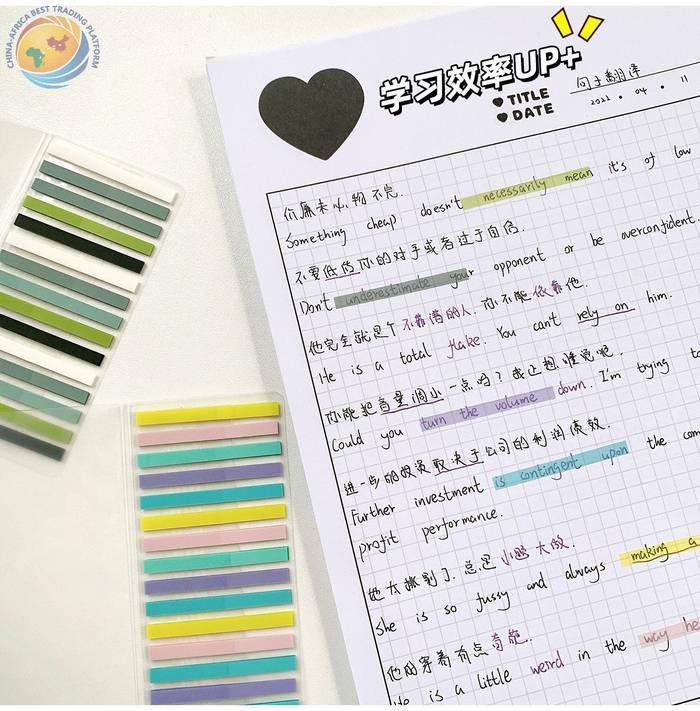 CHINA-AFRICA BEST TRADING PLATFORM
学习效率UP+
TITLE 句子翻译
DATE 2022 . 04 . 11
价廉未必物不完.
Something cheap doesn't necessarily mean it's of low
不要低估你的对手或者过于自信.
Don't underestimate your opponent or be overconfident.
他完全就是个不靠谱的人,你不能依靠他.
He is a total flake. You can't rely on him.
你能把音量调小一点吗?我正想睡觉呢.
Could you turn the volume down. I'm trying to
进一步的投资取决于公司的利润绩效.
Further investment is contingent upon the com
profit performance.
她太挑剔了,总是小题大做.
She is so fussy and always making a
他的穿着有点奇葩.
He is a little weird in the way he